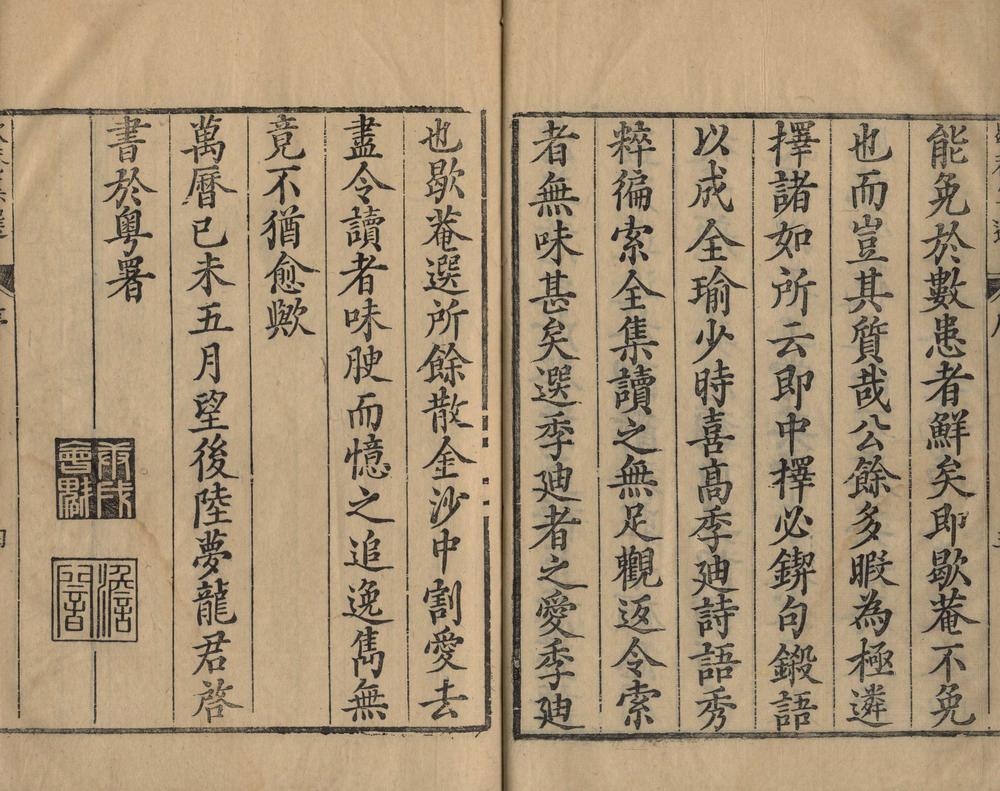 能免於數患者鮮矣即歇菴不免
也而豈其質哉公餘多暇為極遴
擇諸如所云即中擇必鍥句鍛語
以成全瑜少時喜高季廸詩語秀
粹徧索全集讀之無足觀返令索
者無味甚矣選季廸者之愛季廸
也歇菴選所餘散金沙中割愛去
盡令讀者味腴而憶之追逸雋無
竟不猶愈歟
萬曆己未五月望後陸夢龍君啓
書於粤署
丙戌會魁